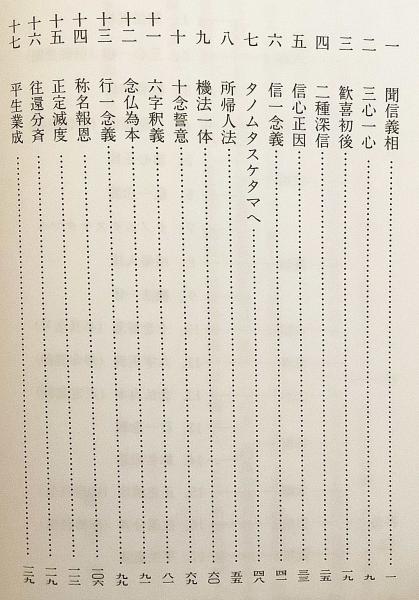 一 聞信義相……一
二 三心一心……九
三 歓喜初後……一九
四 二種深信……二五
五 信心正因……三三
六 信一念義……四一
七 タノムタスケタマヘ……四八
八 所帰人法……五五
九 機法一体……六〇
十 十念誓意……六九
十一 六字釈義……八一
十二 念仏為本……九一
十三 行一念義……九九
十四 称名報恩……一〇六
十五 正定滅度……
十六 往還分斉……一一九
十七 平生業成……一二九